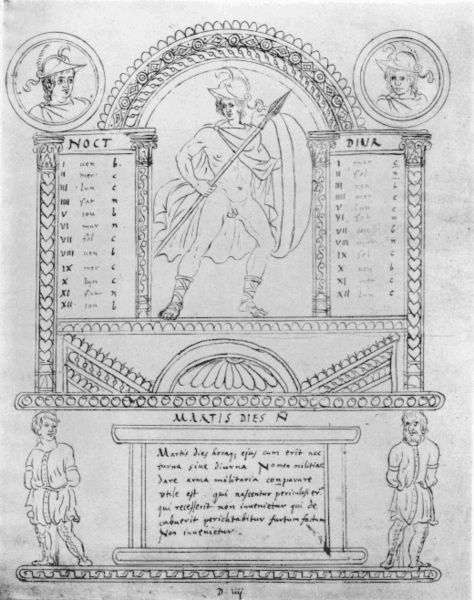 NOCT
I uen b.
II mer c
III lun c
IIII sat n
V iou b
VI mar n
VII sol c
VIII uen b
IX mer c
X lun c
XI sat n
XII iou b
DIUR
I mar
II sol
III uen b
IIII mer c
V lun c
VI sat n
VII iou b
VIII mar n
IX sol c
X uen b
XI mer c
XII lun c
MARTIS DIES Ñ
Martis dies horaq; ejus cum erit noc
turna siue diurna Nomen militiae
Dare arma militaria comparare
utile est qui nascentur periculosi er.
qui recesserit non inuenietur qui de
cubuerit periclitabitur furtum factum
Non inuenietur.
D. iiij